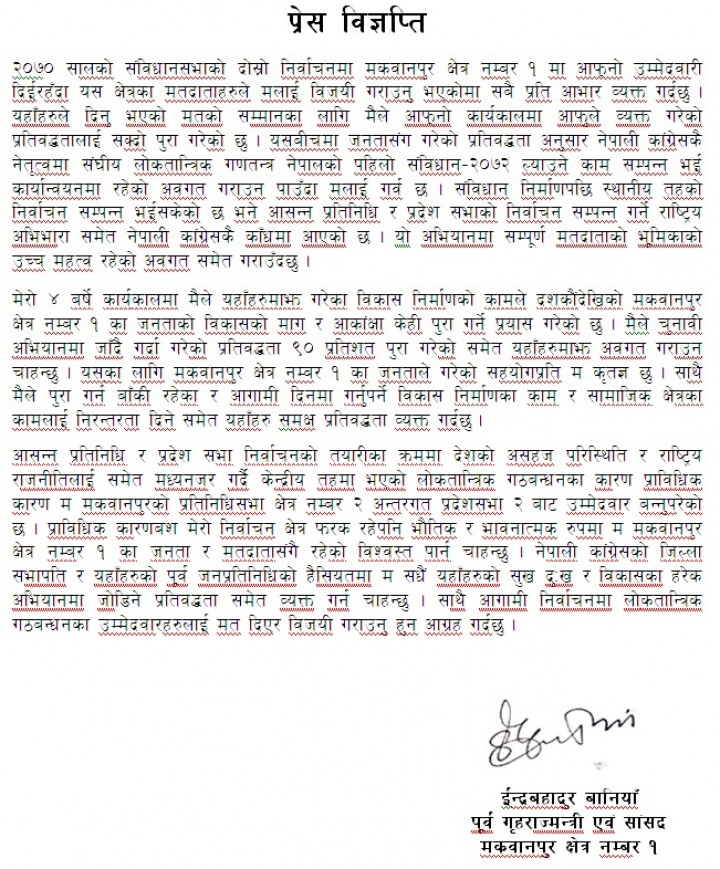 प्रेस विज्ञप्ति
२०७० सालको संविधानसभाको दोस्रो निर्वाचनमा मकवानपुर क्षेत्र नम्बर १ मा आफूनो उम्मेदवारी
दिईरहँदा यस क्षेत्रका मतदाताहरुले मलाई विजयी गराउनु भएकोमा सबै प्रति आभार व्यक्त गर्दछु ।
यहाँहरुले दिनु भएको मतको सम्मानका लागि मैले आफूनो कार्यकालमा आफुले व्यक्त गरेको
प्रतिवद्धतालाई सक्दो पुरा गरेको छु । यसबीचमा जनतासंग गरेको प्रतिवद्धता अनुसार नेपाली कांग्रेसकै
नेतृत्वमा संघीय लोकतान्त्रिक गणतन्त्र नेपालको पहिलो संविधान-२०७२ ल्याउने काम सम्पन्न भई
कार्यान्वयनमा रहेको अवगत गराउन पाउँदा मलाई गर्व छ । संविधान निर्माणपछि स्थानीय तहको
निर्वाचन सम्पन्न भईसकेको छ भने आसन्न प्रतिनिधि र प्रदेश सभाको निर्वाचन सम्पन्न गर्ने राष्ट्रिय
अभिभारा समेत नेपाली कांग्रेसकै काँधमा आएको छ । यो अभियानमा सम्पूर्ण मतदाताको भूमिकाको
उच्च महत्व रहेको अवगत समेत गराउँदछु ।
मेरो ४ बर्षे कार्यकालमा मैले यहाँहरुमाझ गरेका विकास निर्माणको कामले दशकौंदेखिको मकवानपुर
क्षेत्र नम्बर १ का जनताको विकासको माग र आकांक्षा केही पुरा गर्ने प्रयास गरेको छु । मैले चुनावी
अभियानमा जाँदै गर्दा गरेको प्रतिवद्धता ९० प्रतिशत पुरा गरेको समेत यहाँहरुमाझ अवगत गराउन
चाहन्छु । यसका लागि मकवानपुर क्षेत्र नम्बर १ का जनताले गरेको सहयोगप्रति म कृतज्ञ छु । साथै
मैले पुरा गर्न बाँकी रहेका र आगामी दिनमा गर्नुपर्ने विकास निर्माणका काम र सामाजिक क्षेत्रका
कामलाई निरन्तरता दिने समेत यहाँहरु समक्ष प्रतिवद्धता व्यक्त गर्दछु ।
आसन्न प्रतिनिधि र प्रदेश सभा निर्वाचनको तयारीका क्रममा देशको असहज परिस्थिति र राष्ट्रिय
राजनीतिलाई समेत मध्यनजर गर्दै केन्द्रीय तहमा भएको लोकतान्त्रिक गठबन्धनका कारण प्राविधिक
कारण म मकवानपुरको प्रतिनिधिसभा क्षेत्र नम्बर २ अन्तरगत प्रदेशसभा २ बाट उम्मेदवार बन्नुपरेको
छ । प्राविधिक कारणबश मेरो निर्वाचन क्षेत्र फरक रहेपनि भौतिक र भावनात्मक रुपमा म मकवानपुर
क्षेत्र नम्बर १ का जनता र मतदातासंगै रहेको विश्वस्त पार्न चाहन्छु । नेपाली कांग्रेसको जिल्ला
सभापति र यहाँहरुको पूर्व जनप्रतिनिधिको हैसियतमा म सधैं यहाँहरुको सुख दुःख र विकासका हरेक
अभियानमा जोडिने प्रतिवद्धता समेत व्यक्त गर्न चाहन्छु । साथै आगामी निर्वाचनमा लोकतान्त्रिक
गठबन्धनका उम्मेदवारहरुलाई मत दिएर विजयी गराउनु हुन आग्रह गर्दछु ।
ईन्द्रबहादुर बानियाँ
पूर्व गृहराज्मन्त्री एवं सांसद
मकवानपुर क्षेत्र नम्बर १